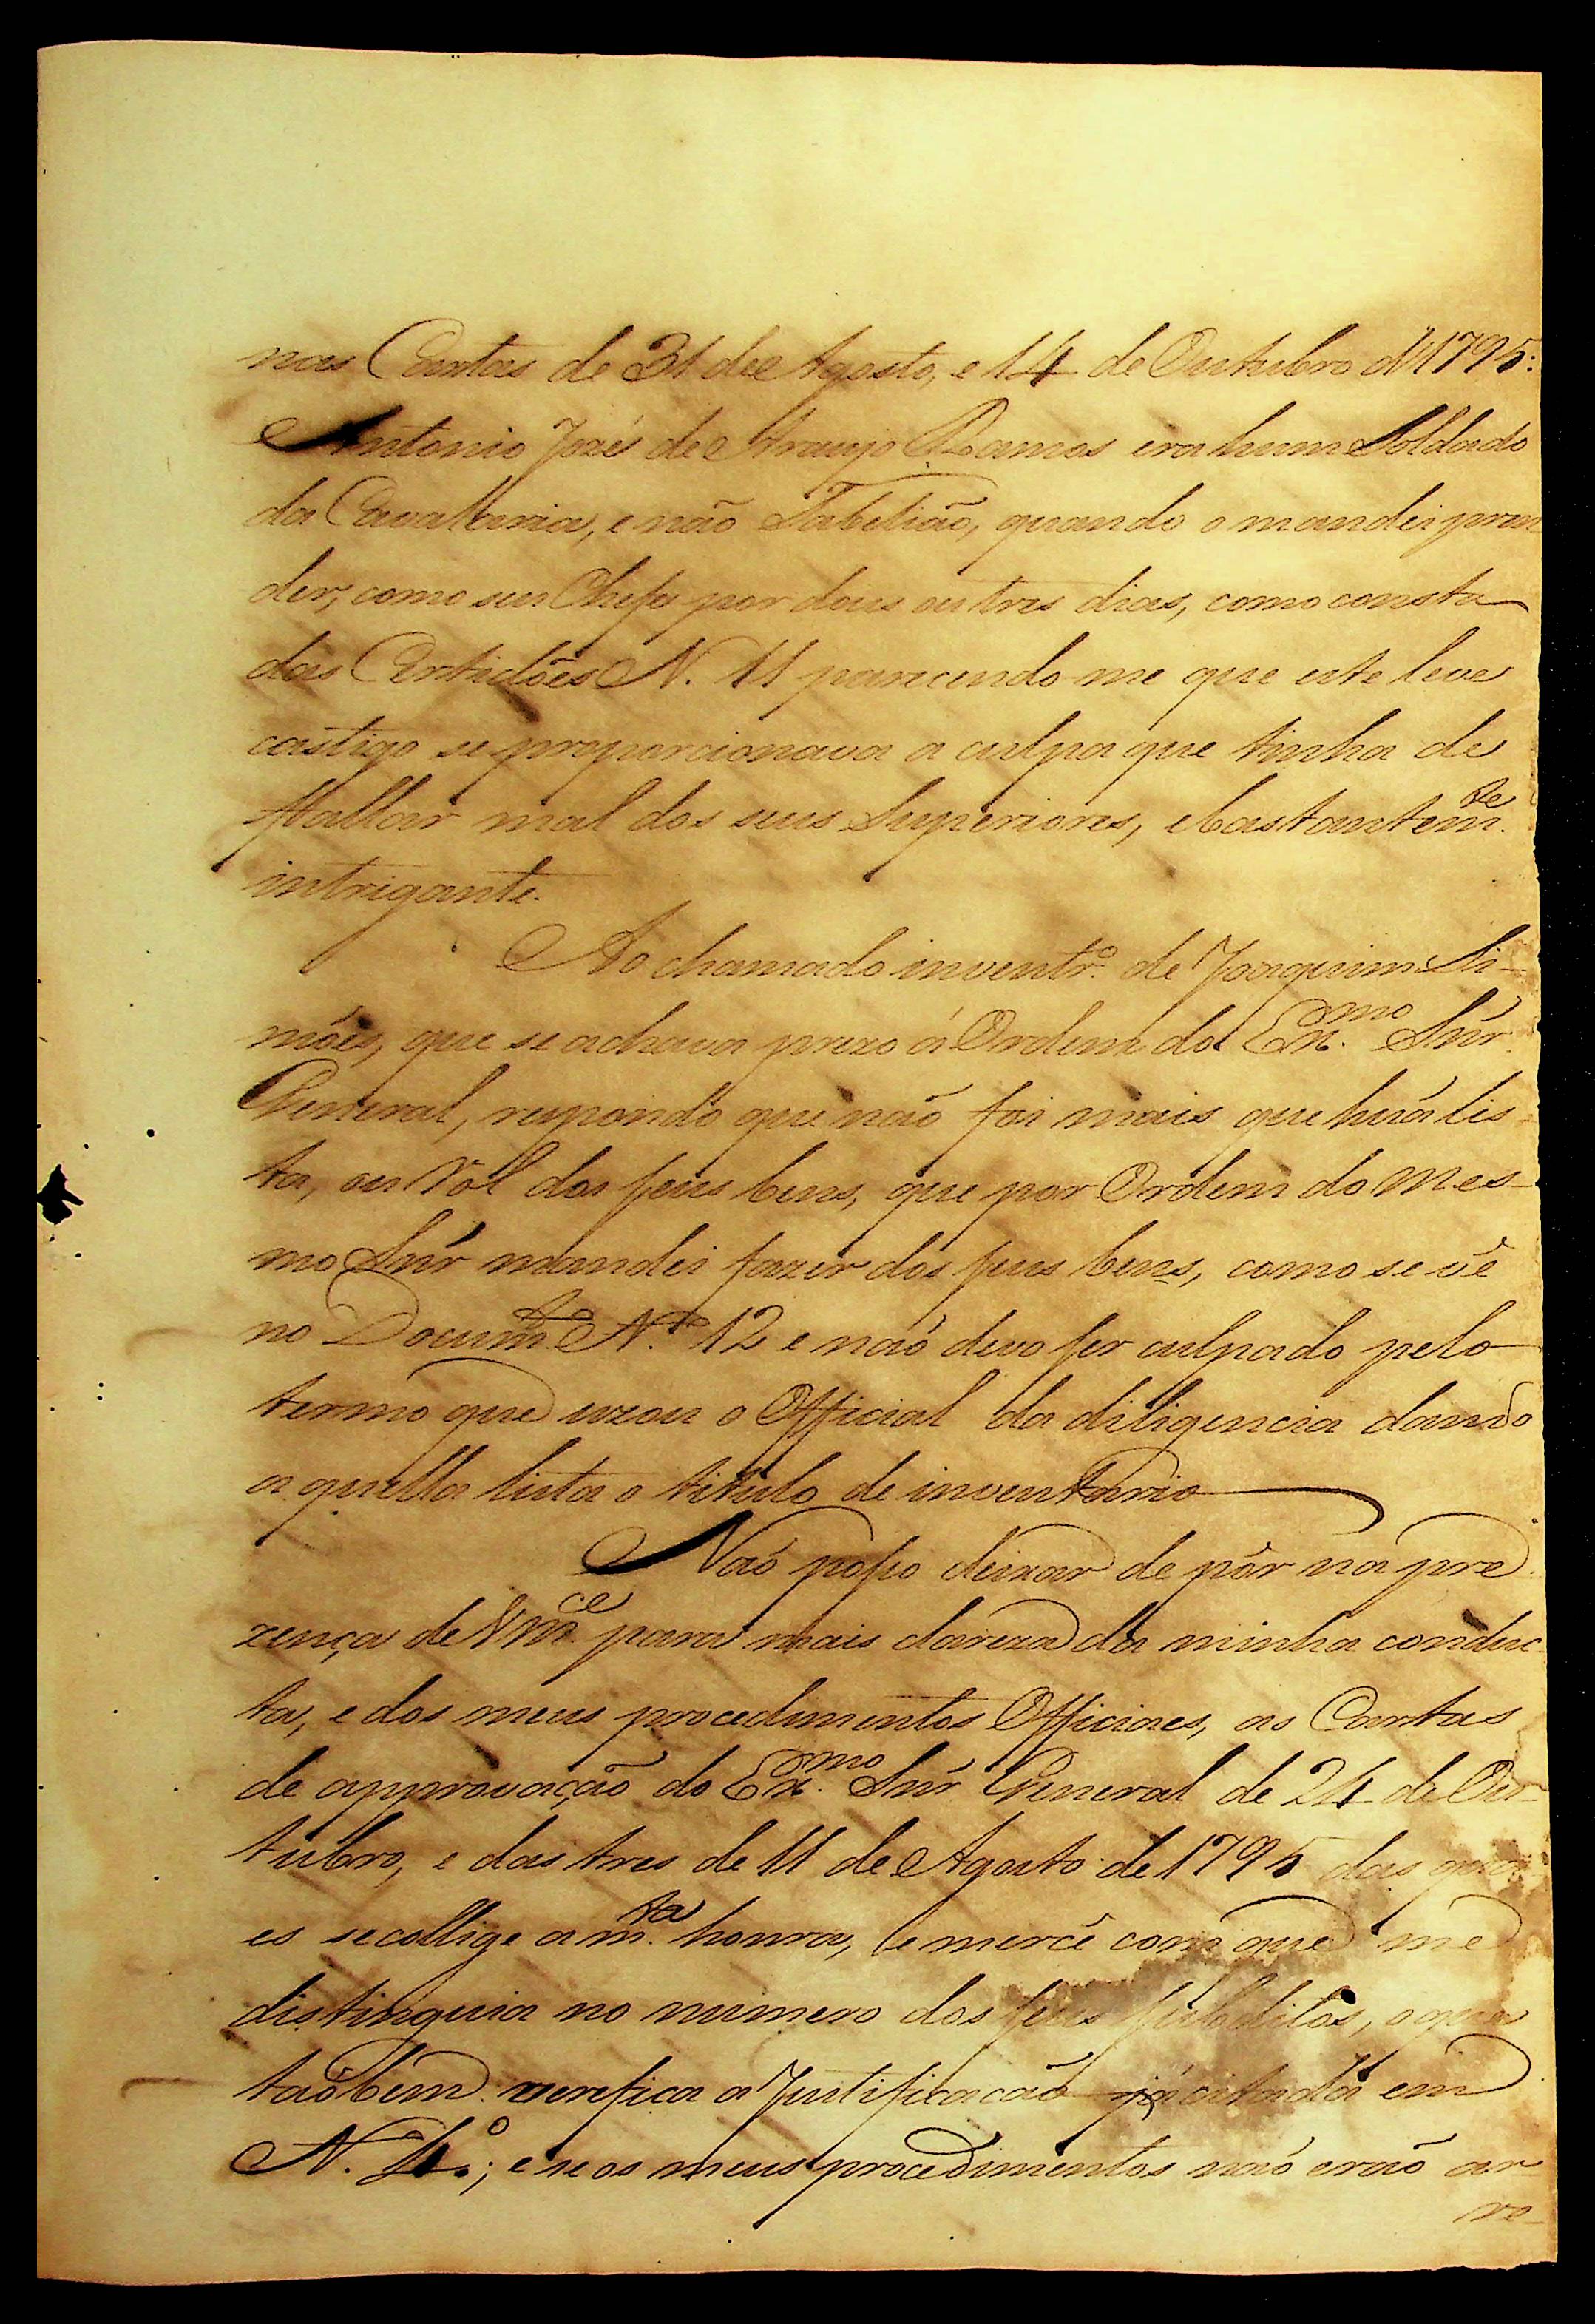 nas Cartas de 31 de Agosto, e 14 de Outubro d'1795:
Antonio Jozé de Araujo Ramos era hum Soldado
da Cavalaria, e não Tabelião, quando o mandei pren
der, como seu Chefe por dous ou tres dias, como consta
das Certidões N. 11 parecendo-me que este leve
castigo se proporcionava a culpa que tinha de
ffallar mal dos seus Superiores, e bastantem.te
intrigante.
Ao chamado inventr.o de Joaquim Si-
mões, que se achava prezo á Ordem do Ex.mo Snr
General, respondo que naõ foi mais que huã lis-
ta, ou Rol dos seus bens, que por Ordem do Mes-
mo Snr mandei fazer dos seus bens, como se vê
no Docum.to N.o 12 e naõ devo ser culpado pelo
termo que uzou o Official da diligencia dando
a quella lista o titulo de inventario
Naõ posso deixar de pôr na pre
zença de Vm.ce para mais clareza da minha conduc
ta, e dos meus procedimentos Officiaes, as Cartas
de approvação do Ex.mo Snr General de 24 de Ou-
tubro, e das tres de 11 de Agosto de 1795 das qua
es se collige a m.ta honra, e mercê com que me
distinguia no numero dos seus subditos, o que
taõbem verefica a Justificacão já citada em
N. 4.o; e se os meus procedimentos naõ erão ar
re-